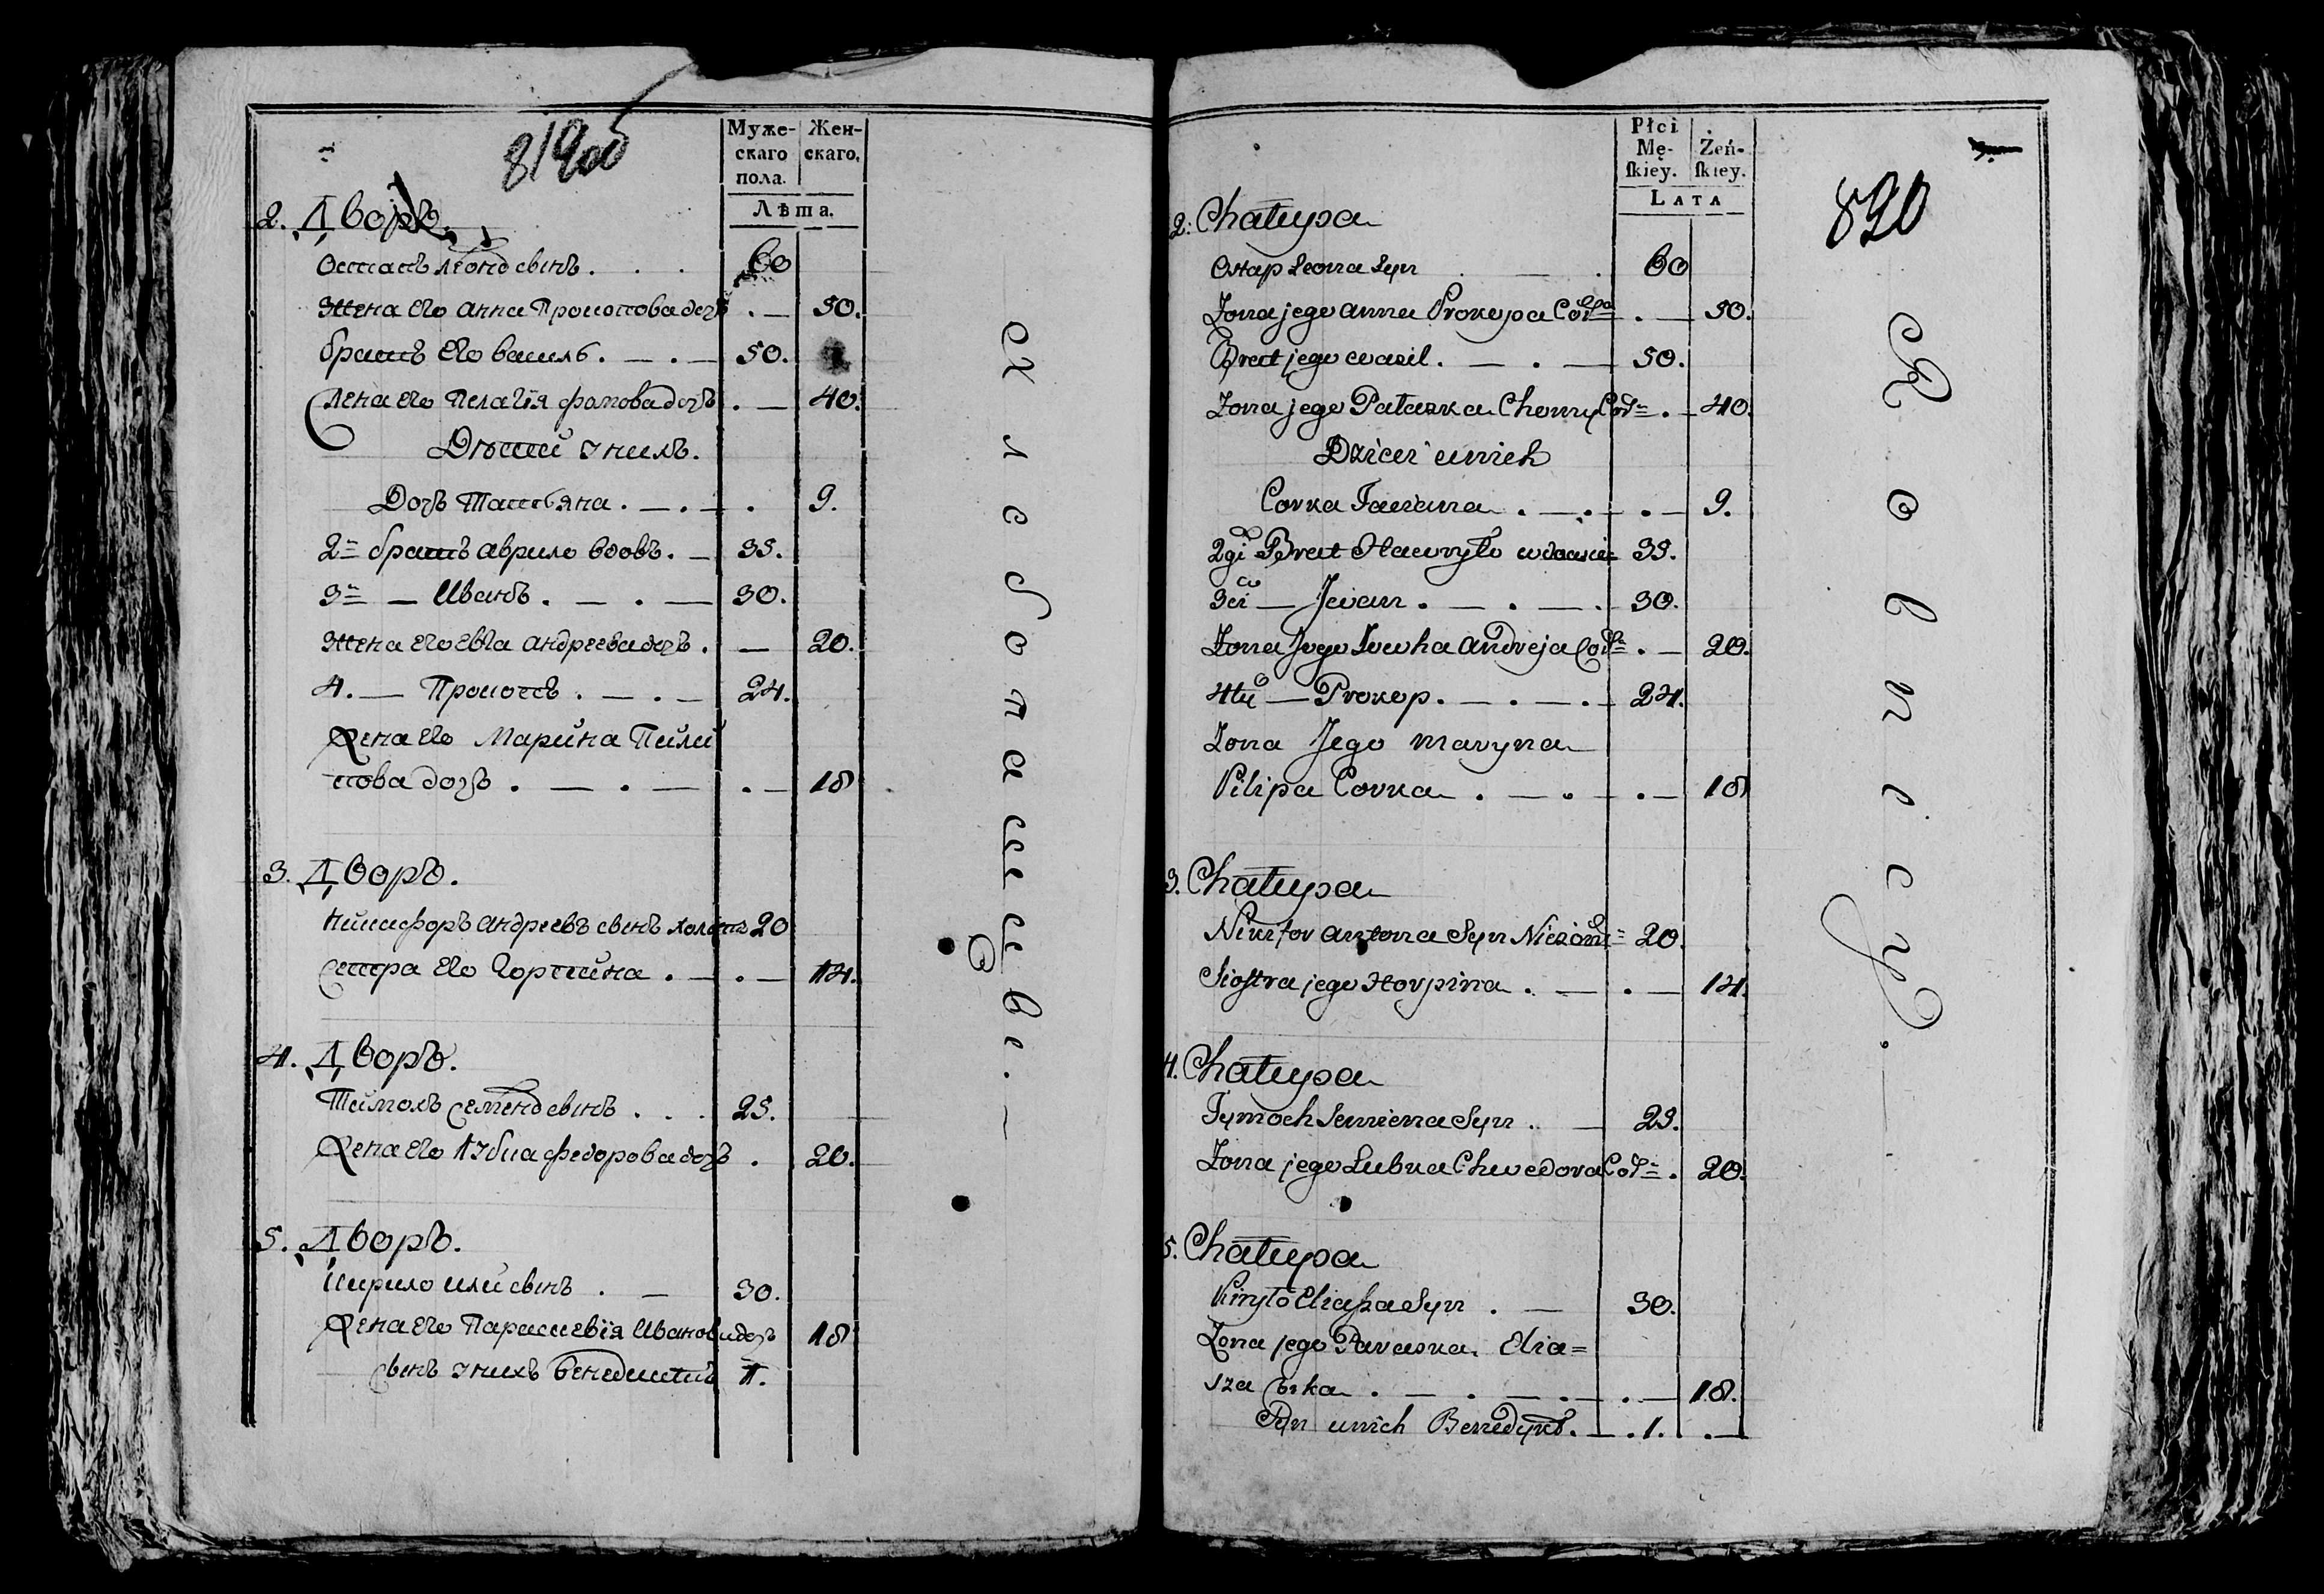 819об
Муже-
скаго
пола.
Жен-
скаго.
Лѣта.
2. Дворъ.
Остапъ леонд свинъ . . . 60
Жена Его анна Прокопова дочъ . — 50.
братъ Его василь . — . — 50.
Жена Его Пелагія фомова дочъ . — 40.
Дѣтей з нихъ.
Дочъ Татьяна . — . — . 9.
2й братъ аврило вдовъ . — 35.
3й — Иванъ . — . — 30.
Жена его евга андреева дочъ . — 20.
4. — Прокопъ . — . — 24.
Жена Его Марина Пили
пова дочъ . — . — . — 18
3. Дворъ.
Никифоръ андреевъ свинъ холостъ 20
Сестра Его Горпина . — . — 14.
4. Дворъ.
Тимохъ семенд свинъ . . . 25.
Жена Его лубка федорова дочъ . 20.
5. Дворъ.
Кирило или свинъ . — 30.
Жена Его Параскевія Иванова дочъ 18
свинъ з нихъ бенедиктъ 1.
Хлебопашцеве. —
Płci
Mę-
ſkiey.
Żeń-
ſkiey.
LATA
820
2. Chałupa
Ostap Leona Syn . — . 60
Żona jego anna Prokopa Córka . — 50.
Brat jego wasil . — . — 50.
Żona jego Pałazka Chomy Cór= . — 40.
Dzieci unich
Corka Taciana . — . — . — 9.
2gi Brat Hawryło wdowiec 35.
3ci — Jwan . — . — . 30.
Żona Jego Jewha andreja Cór= . — 20.
4ty — Prokop . — . — . — 24.
Żona Jego maryna
Pilipa Corka . — . — . — 18
3. Chałupa
Nikifor antona Syn Nieżon= 20.
Siostra jego Horpina . — . — 14.
4. Chałupa
Tymoch Semiena Syn . — 25.
Żona jego Lubka Chwedora Cór= . 20.
5. Chałupa
Kiryło Eliaſza Syn . — 30.
Żona jego Paraska Elia=
sza Córka . — . — . — 18.
Syn unich Benedykt . — . 1. . —
Rolnicy. —